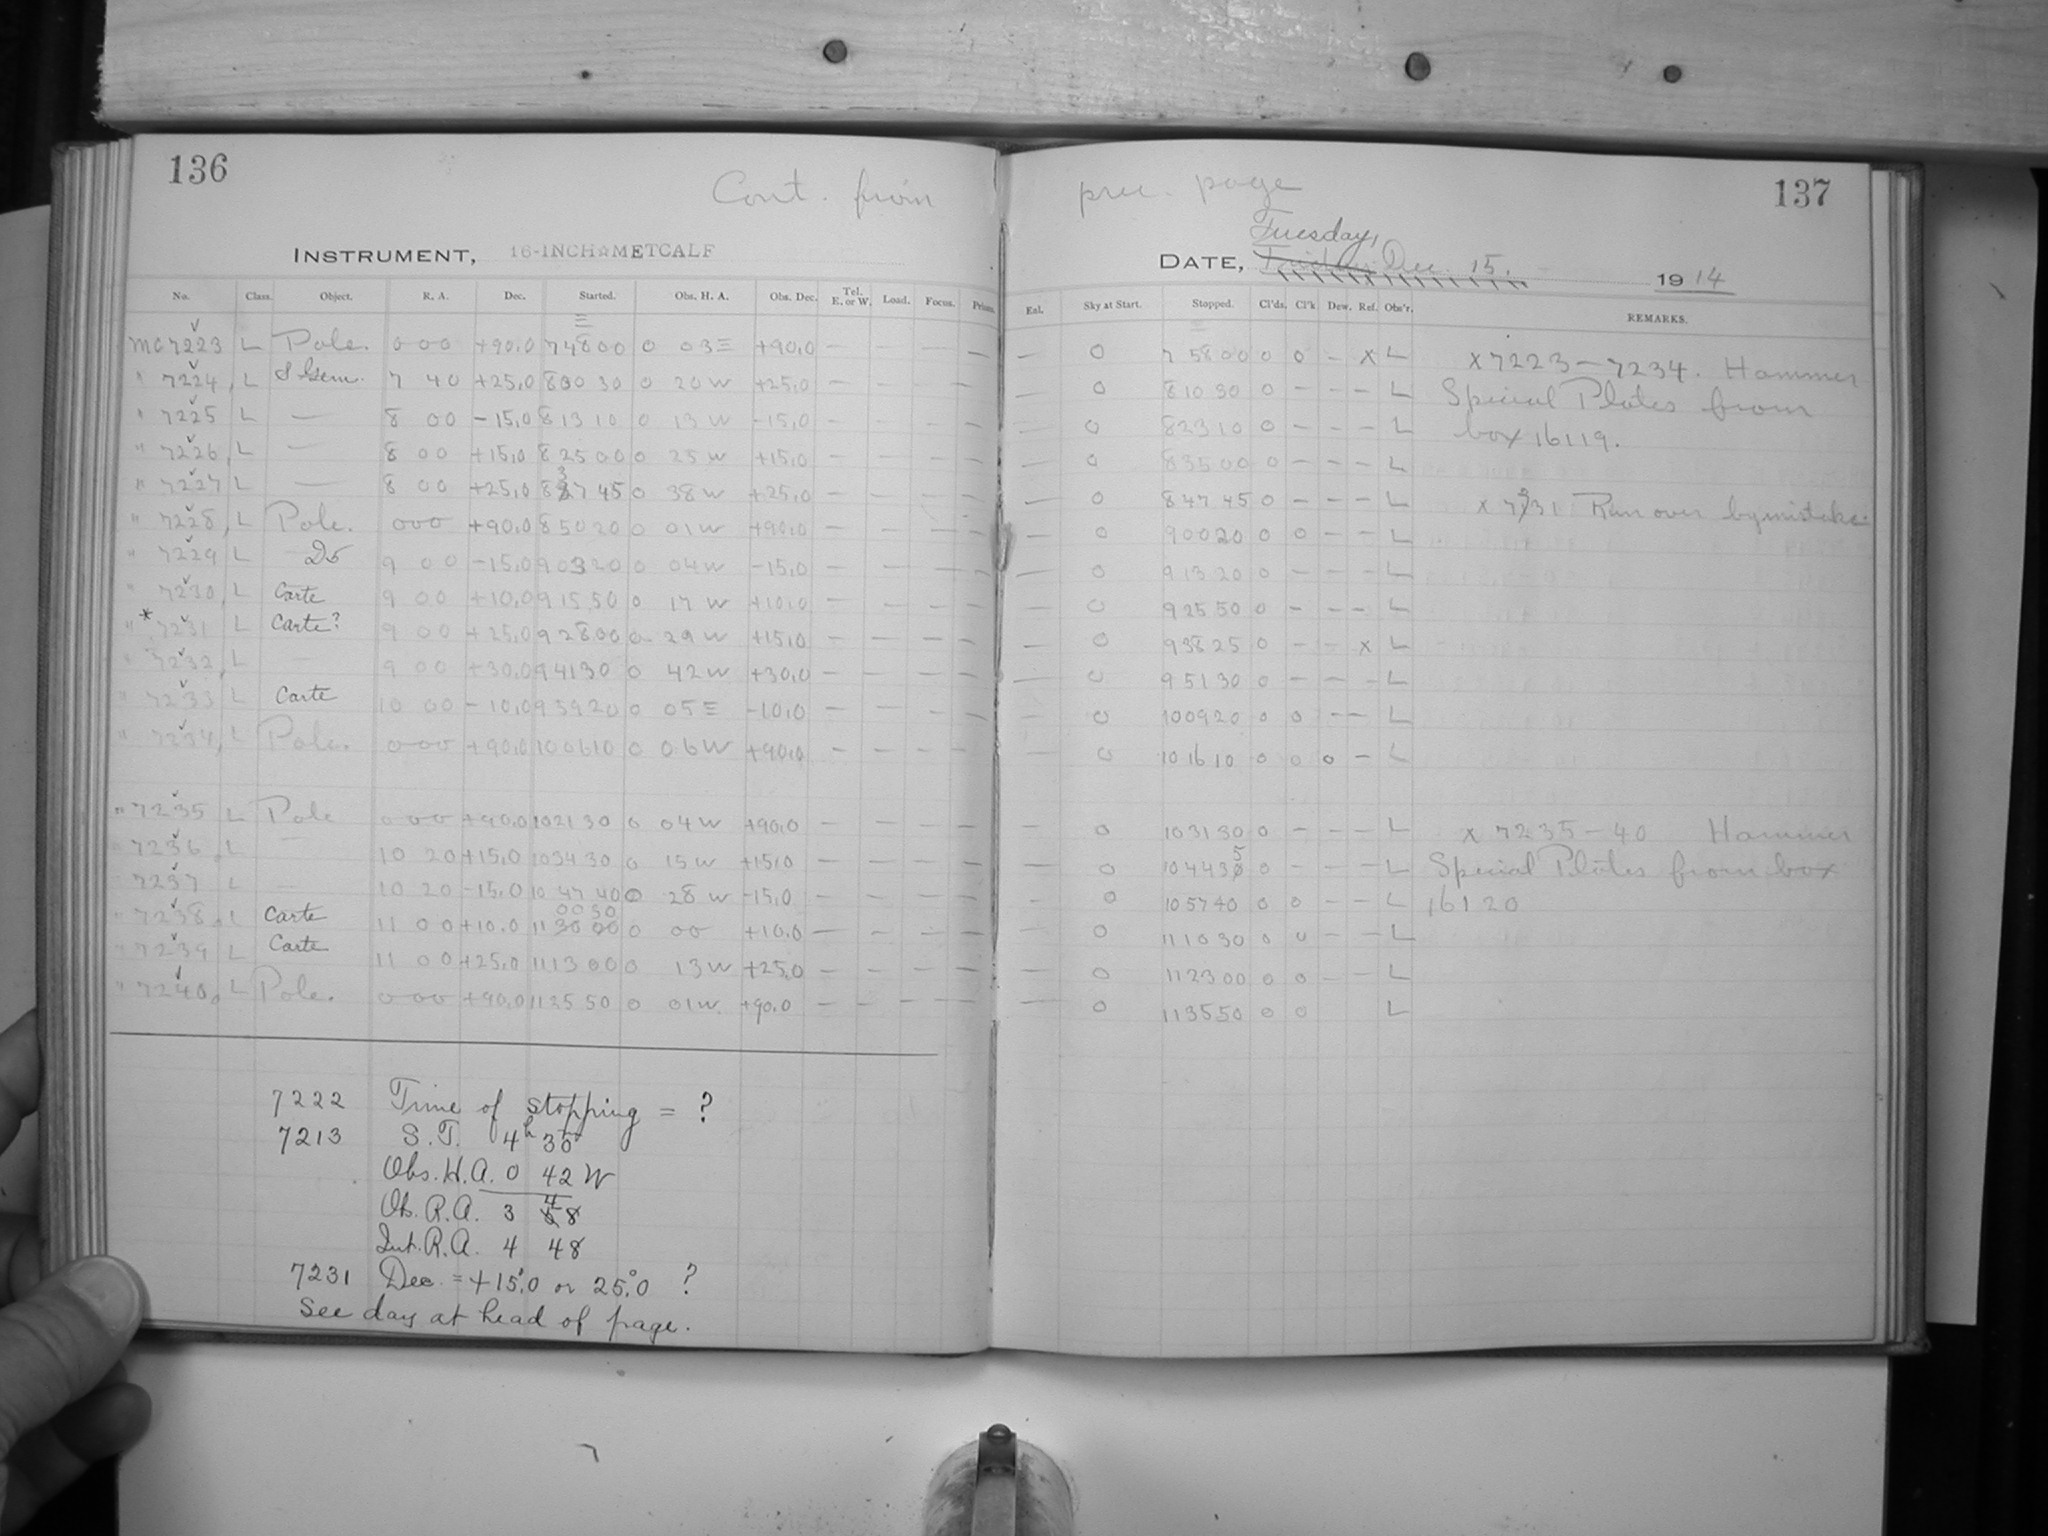 136
Cont. from
INSTRUMENT, 16-INCH☆METCALF
No. Class. Object. R. A. Dec. Started. Obs. H. A. Obs. Dec. Tel. E. or W. Load. Focus. Prism.
MC 7223 L Pole. 0 0 0 +90.0 7 48 00 0 03 E +90.0 — — — —
" 7224 L δ Gem. 7 40 +25.0 8 00 30 0 20 W +25.0 — — — —
" 7225 L — 8 00 -15.0 8 13 10 0 13 W -15.0 — — — —
" 7226 L — 8 00 +15.0 8 25 00 0 25 W +15.0 — — — —
" 7227 L — 8 00 +25.0 8 37 45 0 38 W +25.0 — — — —
" 7228 L Pole. 0 0 0 +90.0 8 50 20 0 01 W +90.0 — — — —
" 7229 L Do 9 00 -15.0 9 03 20 0 04 W -15.0 — — — —
" 7230 L Carte 9 00 +10.0 9 15 50 0 17 W +10.0 — — — —
" * 7231 L Carte? 9 00 +25.0 9 28 00 0 29 W +15.0 — — — —
" 7232 L — 9 00 +30.0 9 41 30 0 42 W +30.0 — — — —
" 7233 L Carte 10 00 -10.0 9 59 20 0 05 E -10.0 — — — —
" 7234 L Pole. 0 0 0 +90.0 10 06 10 0 06 W +90.0 — — — —
" 7235 L Pole 0 0 0 +90.0 10 21 30 0 04 W +90.0 — — — —
7236 L — 10 20 +15.0 10 34 30 0 15 W +15.0 — — — —
7237 L — 10 20 -15.0 10 47 40 0 28 W -15.0 — — — —
" 7238 L Carte 11 00 +10.0 11 00 30 0 00 +10.0 — — — —
" 7239 L Carte 11 00 +25.0 11 13 00 0 13 W +25.0 — — — —
" 7240 L Pole. 0 0 0 +90.0 11 25 50 0 01 W +90.0 — — — —
7222 Time of stopping = ?
7213 S.T. 4h 30m
Obs. H.A. 0 42 W
Ob. R.A. 3 48
Int. R.A. 4 48
7231 Dec. = +15.°0 or 25.°0 ?
See day at head of page.
137
prec. page
Tuesday,
DATE, Dec. 15. 1914
Enl. Sky at Start. Stopped. Cl'ds. Cl'k Dew. Ref. Obs'r. REMARKS.
— 0 7 58 00 0 0 — x L x 7223—7234. Hammer
— 0 8 10 30 0 — — — L Special Plates from
— 0 8 23 10 0 — — — L box 16119.
— 0 8 35 00 0 — — — L
— 0 8 47 45 0 — — — L x 7231 Run over by mistake.
— 0 9 00 20 0 0 — — L
— 0 9 13 20 0 — — — L
— 0 9 25 50 0 — — — L
— 0 9 38 25 0 — — x L
— 0 9 51 30 0 — — — L
— 0 10 09 20 0 0 — — L
— 0 10 16 10 0 0 0 — L
— 0 10 31 30 0 — — — L x 7235—40 Hammer
— 0 10 44 35 0 — — — L Special Plates from box
— 0 10 57 40 0 0 — — L 16120
— 0 11 10 30 0 0 — — L
— 0 11 23 00 0 0 — — L
— 0 11 35 50 0 0 L